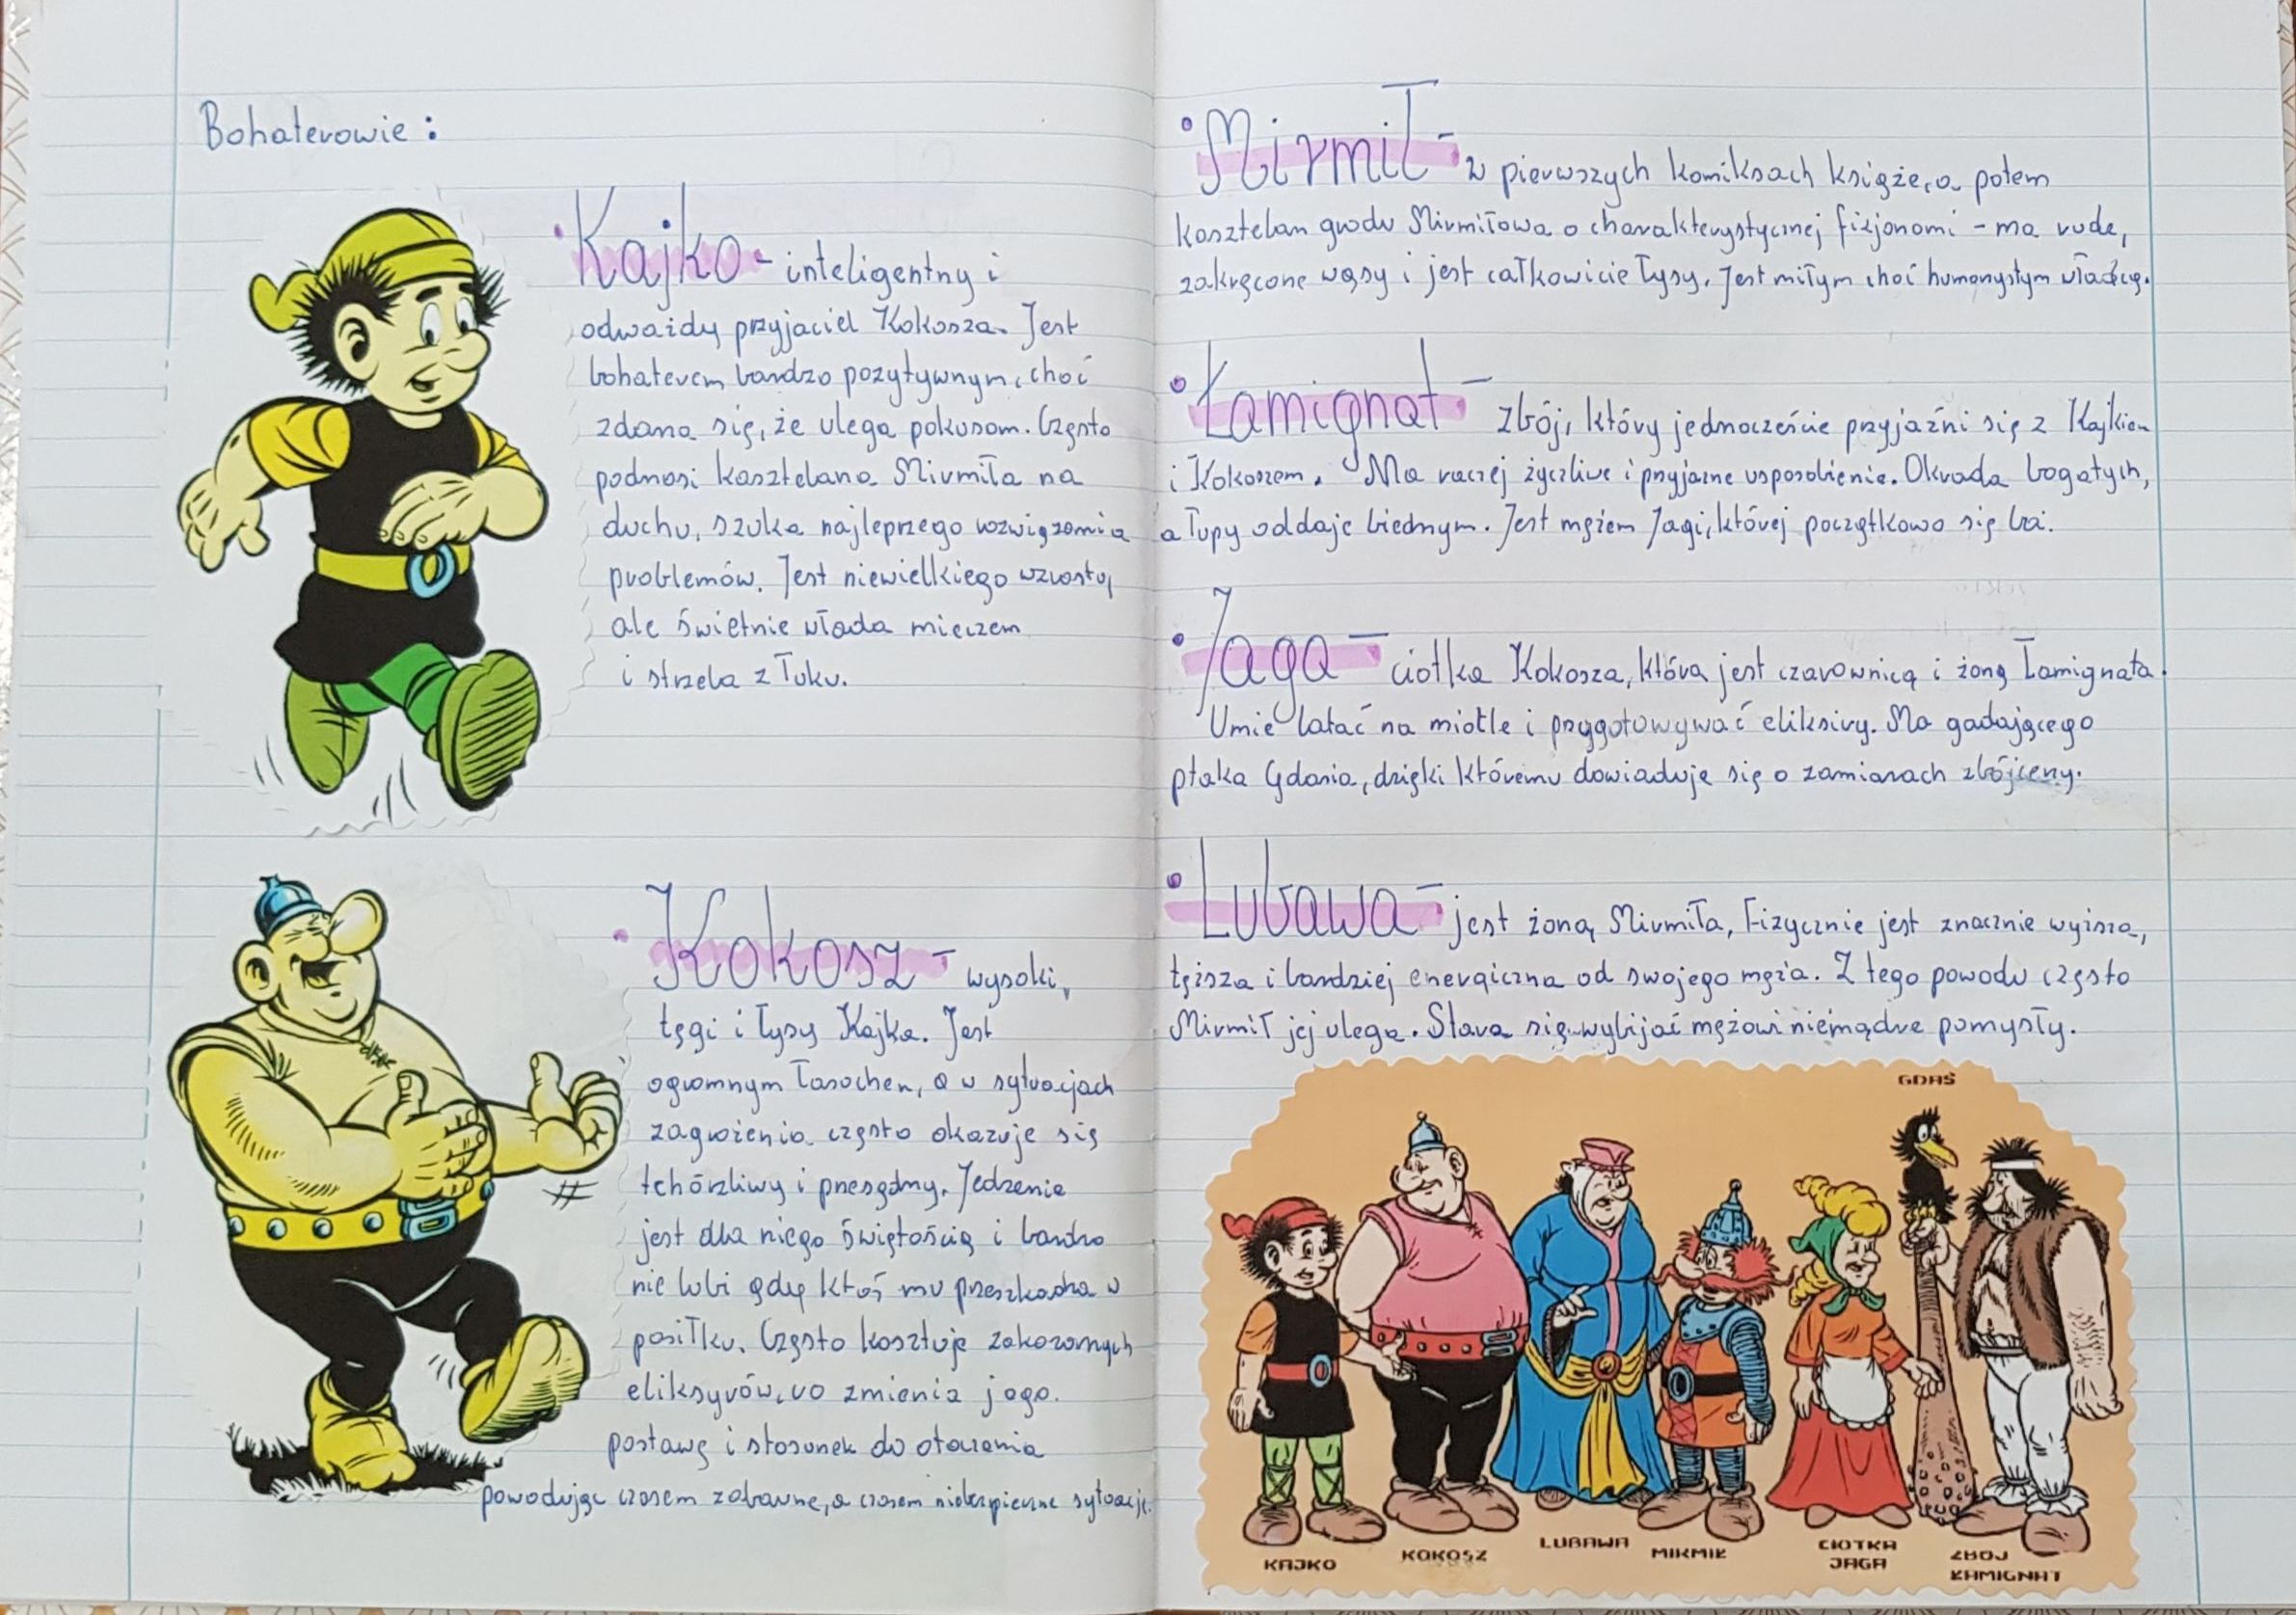 Bohaterowie:
• Kajko - inteligentny i
odważny przyjaciel Kokosza. Jest
bohaterem bardzo pozytywnym, choć
zdarza się, że ulega pokusom. Często
podnosi kasztelana Mirmiła na
duchu, szuka najleprzego rozwiązania
problemów. Jest niewielkiego wzrostu,
ale świetnie włada mieczem
i strzela z łuku.
• Kokosz - wysoki,
tęgi i łysy Kajka. Jest
ogromnym łasuchem, a w sytuacjach
zagrożenia często okazuje się
tchórzliwy i przesądny. Jedzenie
jest dla niego świętością i bardzo
nie lubi gdy ktoś mu przeszkadza w
posiłku. Często kosztuje zakazanych
eliksyrów, co zmienia jego
postawę i stosunek do otoczenia
powodując czasem zabawne, a czasem niebezpieczne sytuacje.
• Mirmił - w pierwszych komiksach książę, a potem
kasztelan grodu Mirmiłowa o charakterystycznej fizjonomi - ma rude,
zakręcone wąsy i jest całkowicie łysy. Jest miłym choć humorzystym władcą.
• Łamignat - zbój, który jednocześnie przyjaźni się z Kajkiem
i Kokoszem. Ma raczej życzliwe i przyjazne usposobienie. Okrada bogatych,
a łupy oddaje biednym. Jest mężem Jagi, której początkowo się boi.
• Jaga - ciotka Kokosza, która jest czarownicą i żoną Łamignata.
Umie latać na miotle i przygotowywać eliksiry. Ma gadającego
ptaka Gdasia, dzięki któremu dowiaduje się o zamiarach zbójcerzy.
• Lubawa - jest żoną Mirmiła, Fizycznie jest znacznie wyższa,
tęższa i bardziej energiczna od swojego męża. Z tego powodu często
Mirmił jej ulega. Stara się wybijać mężowi niemądre pomysły.
GDAŚ
KAJKO
KOKOSZ
LUBAWA
MIRMIŁ
CIOTKA
JAGA
ZBÓJ
ŁAMIGNAT